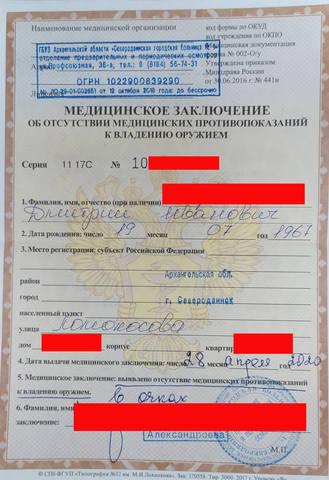 Наименование медицинской организации
код формы по ОКУД
код учреждения по ОКПО
Медицинская документация
форма № 002-О/у
Утверждена приказом
Минздрава России
от 30.06.2016 г. № 441н
ГБУЗ Архангельской области «Северодвинская городская больница №
отделение предварительных и периодических осмотров
Профсоюзная, 36-а, тел.: 8 (8184) 56-74-31
ОГРН 1022900839290
от 12 октября 2018 года до бессрочно
МЕДИЦИНСКОЕ ЗАКЛЮЧЕНИЕ
ОБ ОТСУТСТВИИ МЕДИЦИНСКИХ ПРОТИВОПОКАЗАНИЙ
К ВЛАДЕНИЮ ОРУЖИЕМ
Серия 11 17С № 10
1. Фамилия, имя, отчество (при наличии)
Дмитрий Иванович
2. Дата рождения: число 19 месяц 07 год 1967
3. Место регистрации: субъект Российской Федерации
Архангельская обл.
район
город г. Северодвинск
населенный пункт
улица Ломоносова
дом корпус квартир
4. Дата выдачи медицинского заключения: число 28 апреля 2020
5. Медицинское заключение: выявлено отсутствие медицинских противопоказаний
к владению оружием. В очках
6. Фамилия, имя
заключение:
Александровна
М.П.
© СПб ФГУП «Типография №12 им. М.И.Лоханкова»